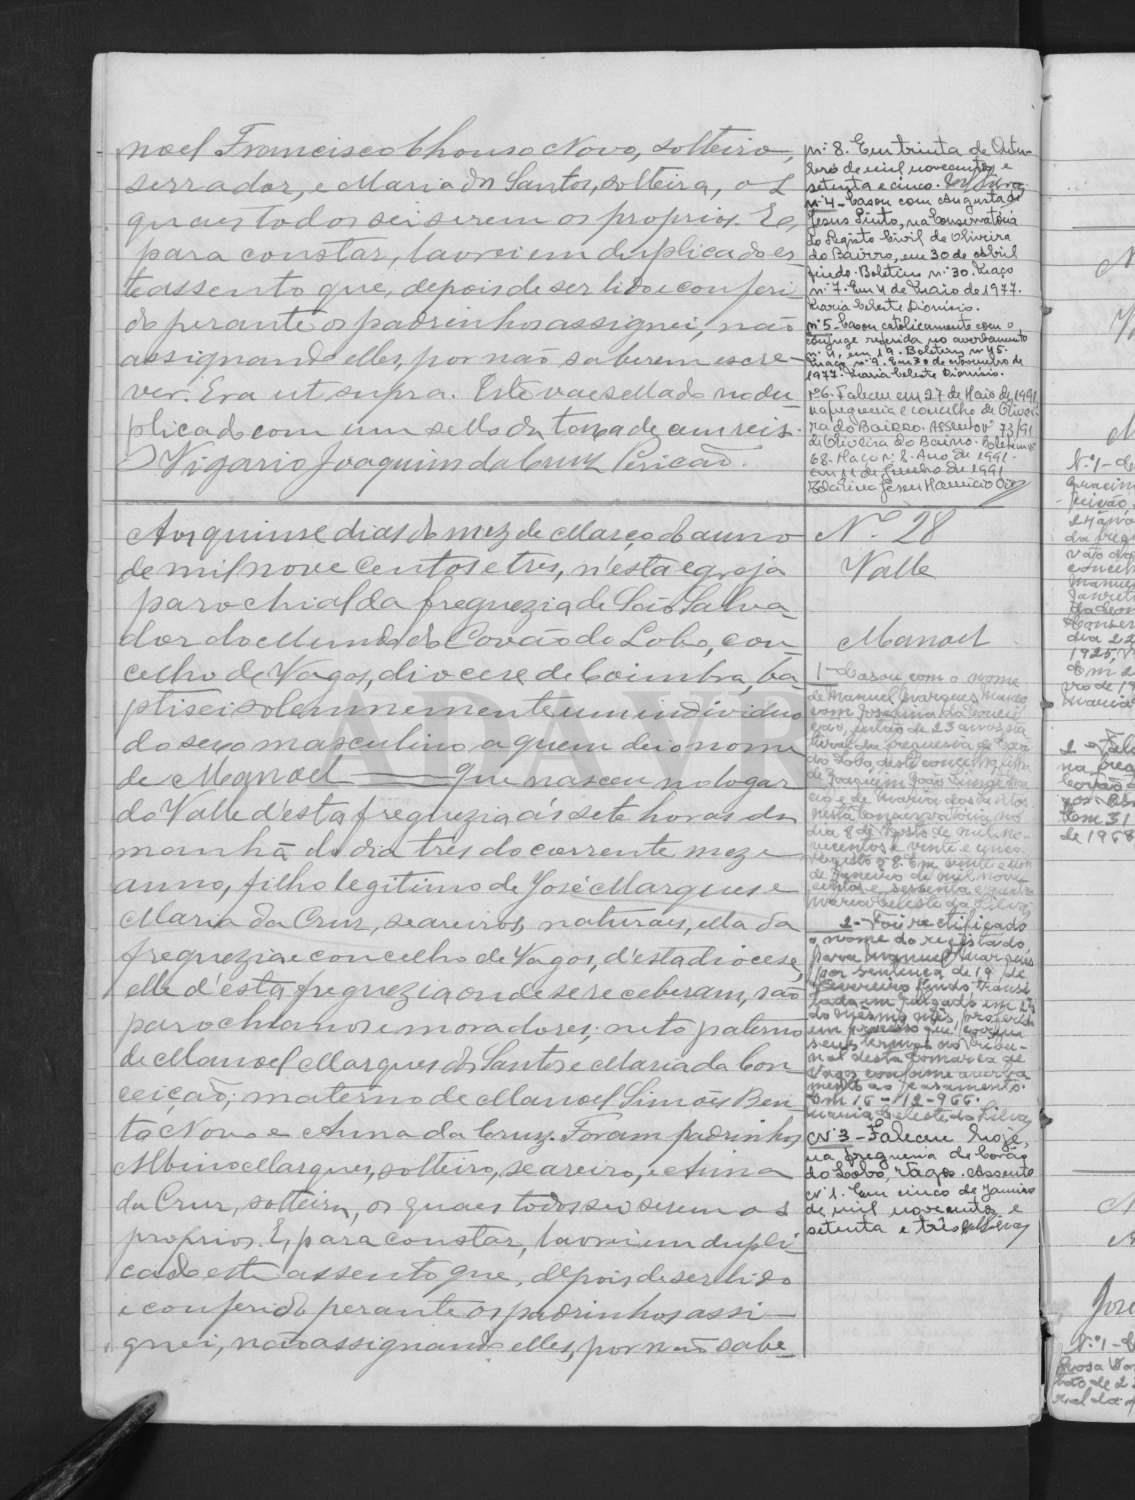 noel Francisco Chouso Novo, solteiro,
serrador, e Maria dos Santos, solteira, o s
quaes todos sei serem os proprios. E,
para constar, lavrei em duplicado es-
te assento que, depois de ser lido e conferi-
do perante os padrinhos assignei, não
assignando elles, por não saberem escre-
ver. Era ut supra. Este vae sellado no du-
plicado com um sello da taxa de cem reis.
O Vigario Joaquim da Cruz Pericão.
Nº 8. Em trinta de Outu-
bro de mil novecentos e
setenta e cinco.
Nº 4 - Casou com Augusta de
Jesus Pinto, na Conservatória
do Registo Civil de Oliveira
do Bairro, em 30 de Abril
findo. Boletim nº 30. Maço
nº 7. Em 4 de Maio de 1977.
Maria Celeste Dionísio.
Nº 5 - Casou catolicamente com o
conjuge referida no averbamento
nº 4, em 19. Boletim nº 45.
Maço nº 9. Em 30 de novembro de
1977. Maria Celeste Dionísio.
Nº 6. Faleceu em 27 de Maio de 1991,
na freguesia e concelho de Olivei-
ra do Bairro. Assento nº 73/91
de Oliveira do Bairro. Boletim nº
68. Maço nº 8. Ano de 1991.
de Junho de 1991
Aos quinse dias do mez de Março do anno
de mil nove centos e tres, n'esta egreja
parochial da freguezia de São Salva-
dor do Mundo do Covão do Lobo, con-
celho de Vagos, diocese de Coimbra, ba-
ptisei solemnemente um individuo
do sexo masculino a quem dei o nome
de Manoel que nasceu no logar
do Valle d'esta freguezia ás sete horas da
manhã do dia tres do corrente mez e
anno, filho legitimo de José Marques e
Maria da Cruz, seareiros, naturaes, ella da
freguezia e concelho de Vagos, d'esta diocese,
elle d'esta freguezia onde se receberam, são
parochianos e moradores; neto paterno
de Manoel Marques dos Santos e Maria da Con-
ceição; materno de Manoel Simões Ben-
to Novo e Anna da Cruz. Foram padrinhos
Albino Marques, solteiro, seareiro, e Anna
da Cruz, solteira, os quaes todos sei serem o s
proprios. E, para constar, lavrei em dupli-
cado este assento que, depois de ser lido
e conferido perante os padrinhos assi-
gnei, não assignando elles, por não sabe-
Nº 28
Valle
Manoel
1 - Casou com o nome
de Manuel Marques
com Josefina da Concei-
ção, de 23 anos, na-
tural da freguesia de Covão
do Lobo, deste concelho, filha
de Joaquim João
e de Maria dos Santos
nesta Conservatória no
dia 8 de Agosto de mil no-
vecentos e vinte e cinco.
Registo nº 8. Em vinte e um
de Janeiro de mil nove-
centos e sessenta e quatro
Maria Celeste da Silva
2 - Foi rectificado
o nome do registado,
para Manuel Marques
por sentença de 19 de
Fevereiro findo, transi-
tada em julgado em
do mesmo mês, proferida
em processo que correu
seus termos no Tribu-
nal desta comarca de
Vagos conforme averba-
mento ao casamento.
Em 16-12-966.
Maria Celeste da Silva
Nº 3 - Faleceu hoje,
na freguesia de Covão
do Lobo, Vagos. Assento
nº 1. Em cinco de Janeiro
de mil novecentos e
setenta e três
ADAVR